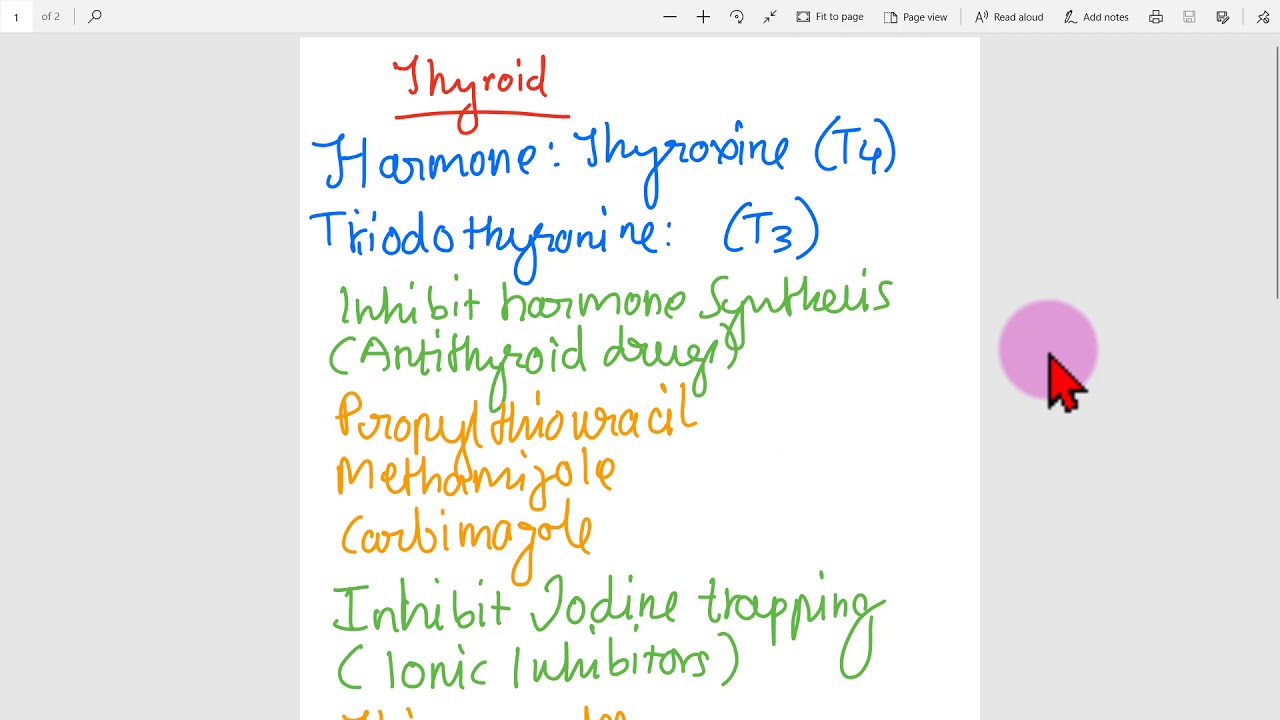 1 of 2 Fit to page Page view Read aloud Add notes
Thyroid
Harmone: Thyroxine (T4)
Triodothyronine: (T3)
Inhibit harmone Synthesis
(Antithyroid drugs)
Propylthiouracil
Methamizole
Carbimazole
Inhibit Iodine trapping
(Ionic Inhibitors)